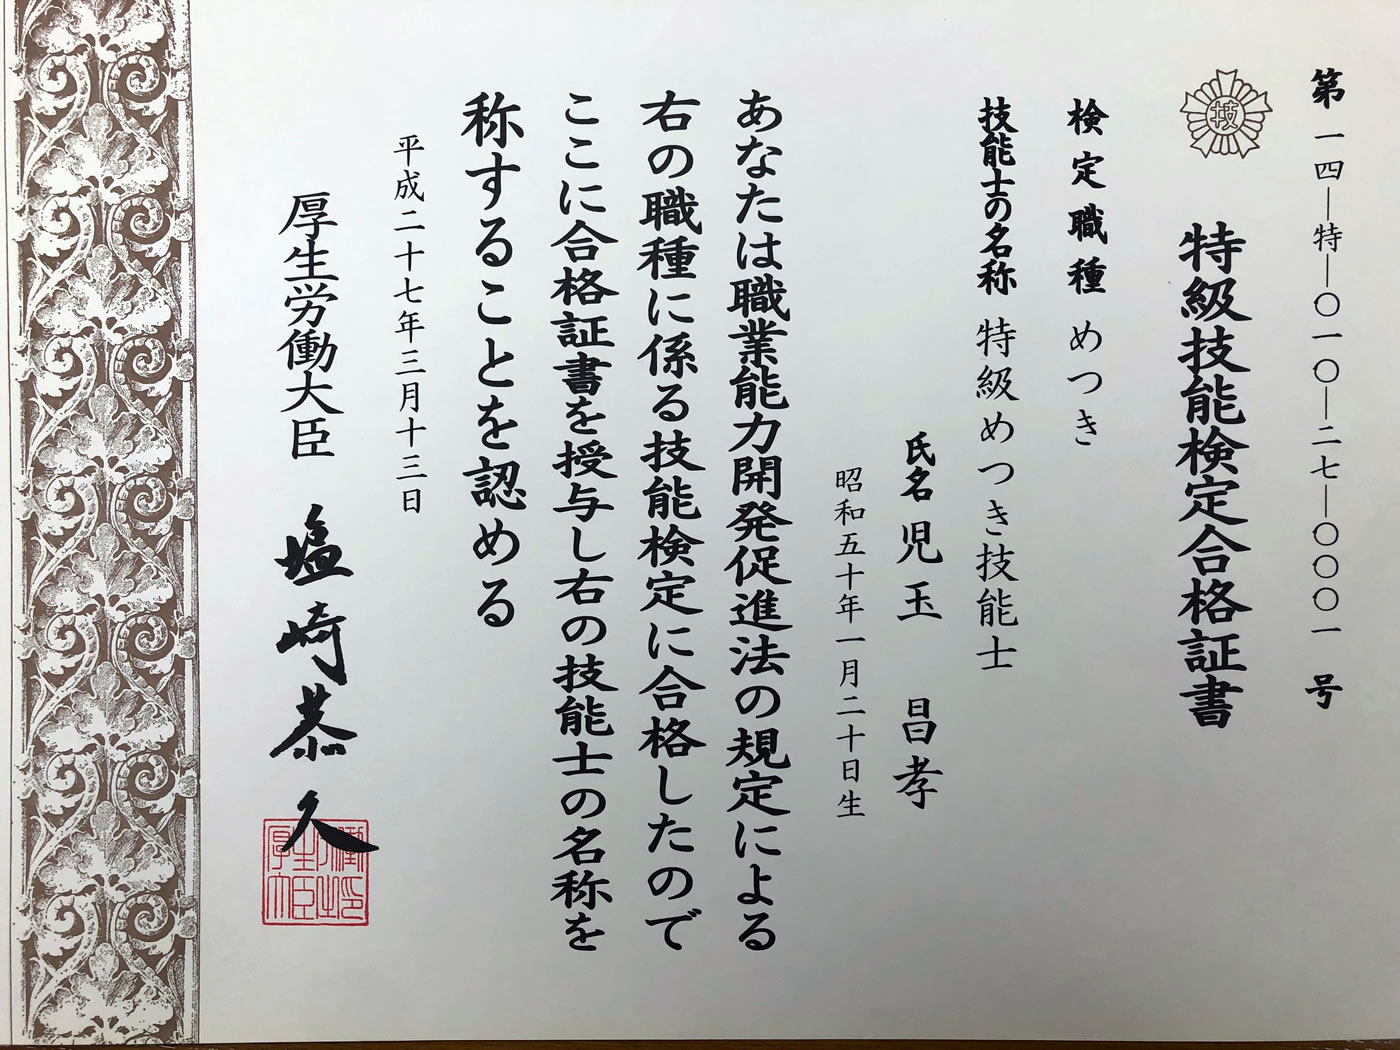 第一四―特―〇一〇―二七―〇〇〇一号
技
特級技能検定合格証書
検定職種 めつき
技能士の名称 特級めつき技能士
氏名 児玉 昌孝
昭和五十年一月二十日生
あなたは職業能力開発促進法の規定による
右の職種に係る技能検定に合格したので
ここに合格証書を授与し右の技能士の名称を
称することを認める
平成二十七年三月十三日
厚生労働大臣 塩崎恭久